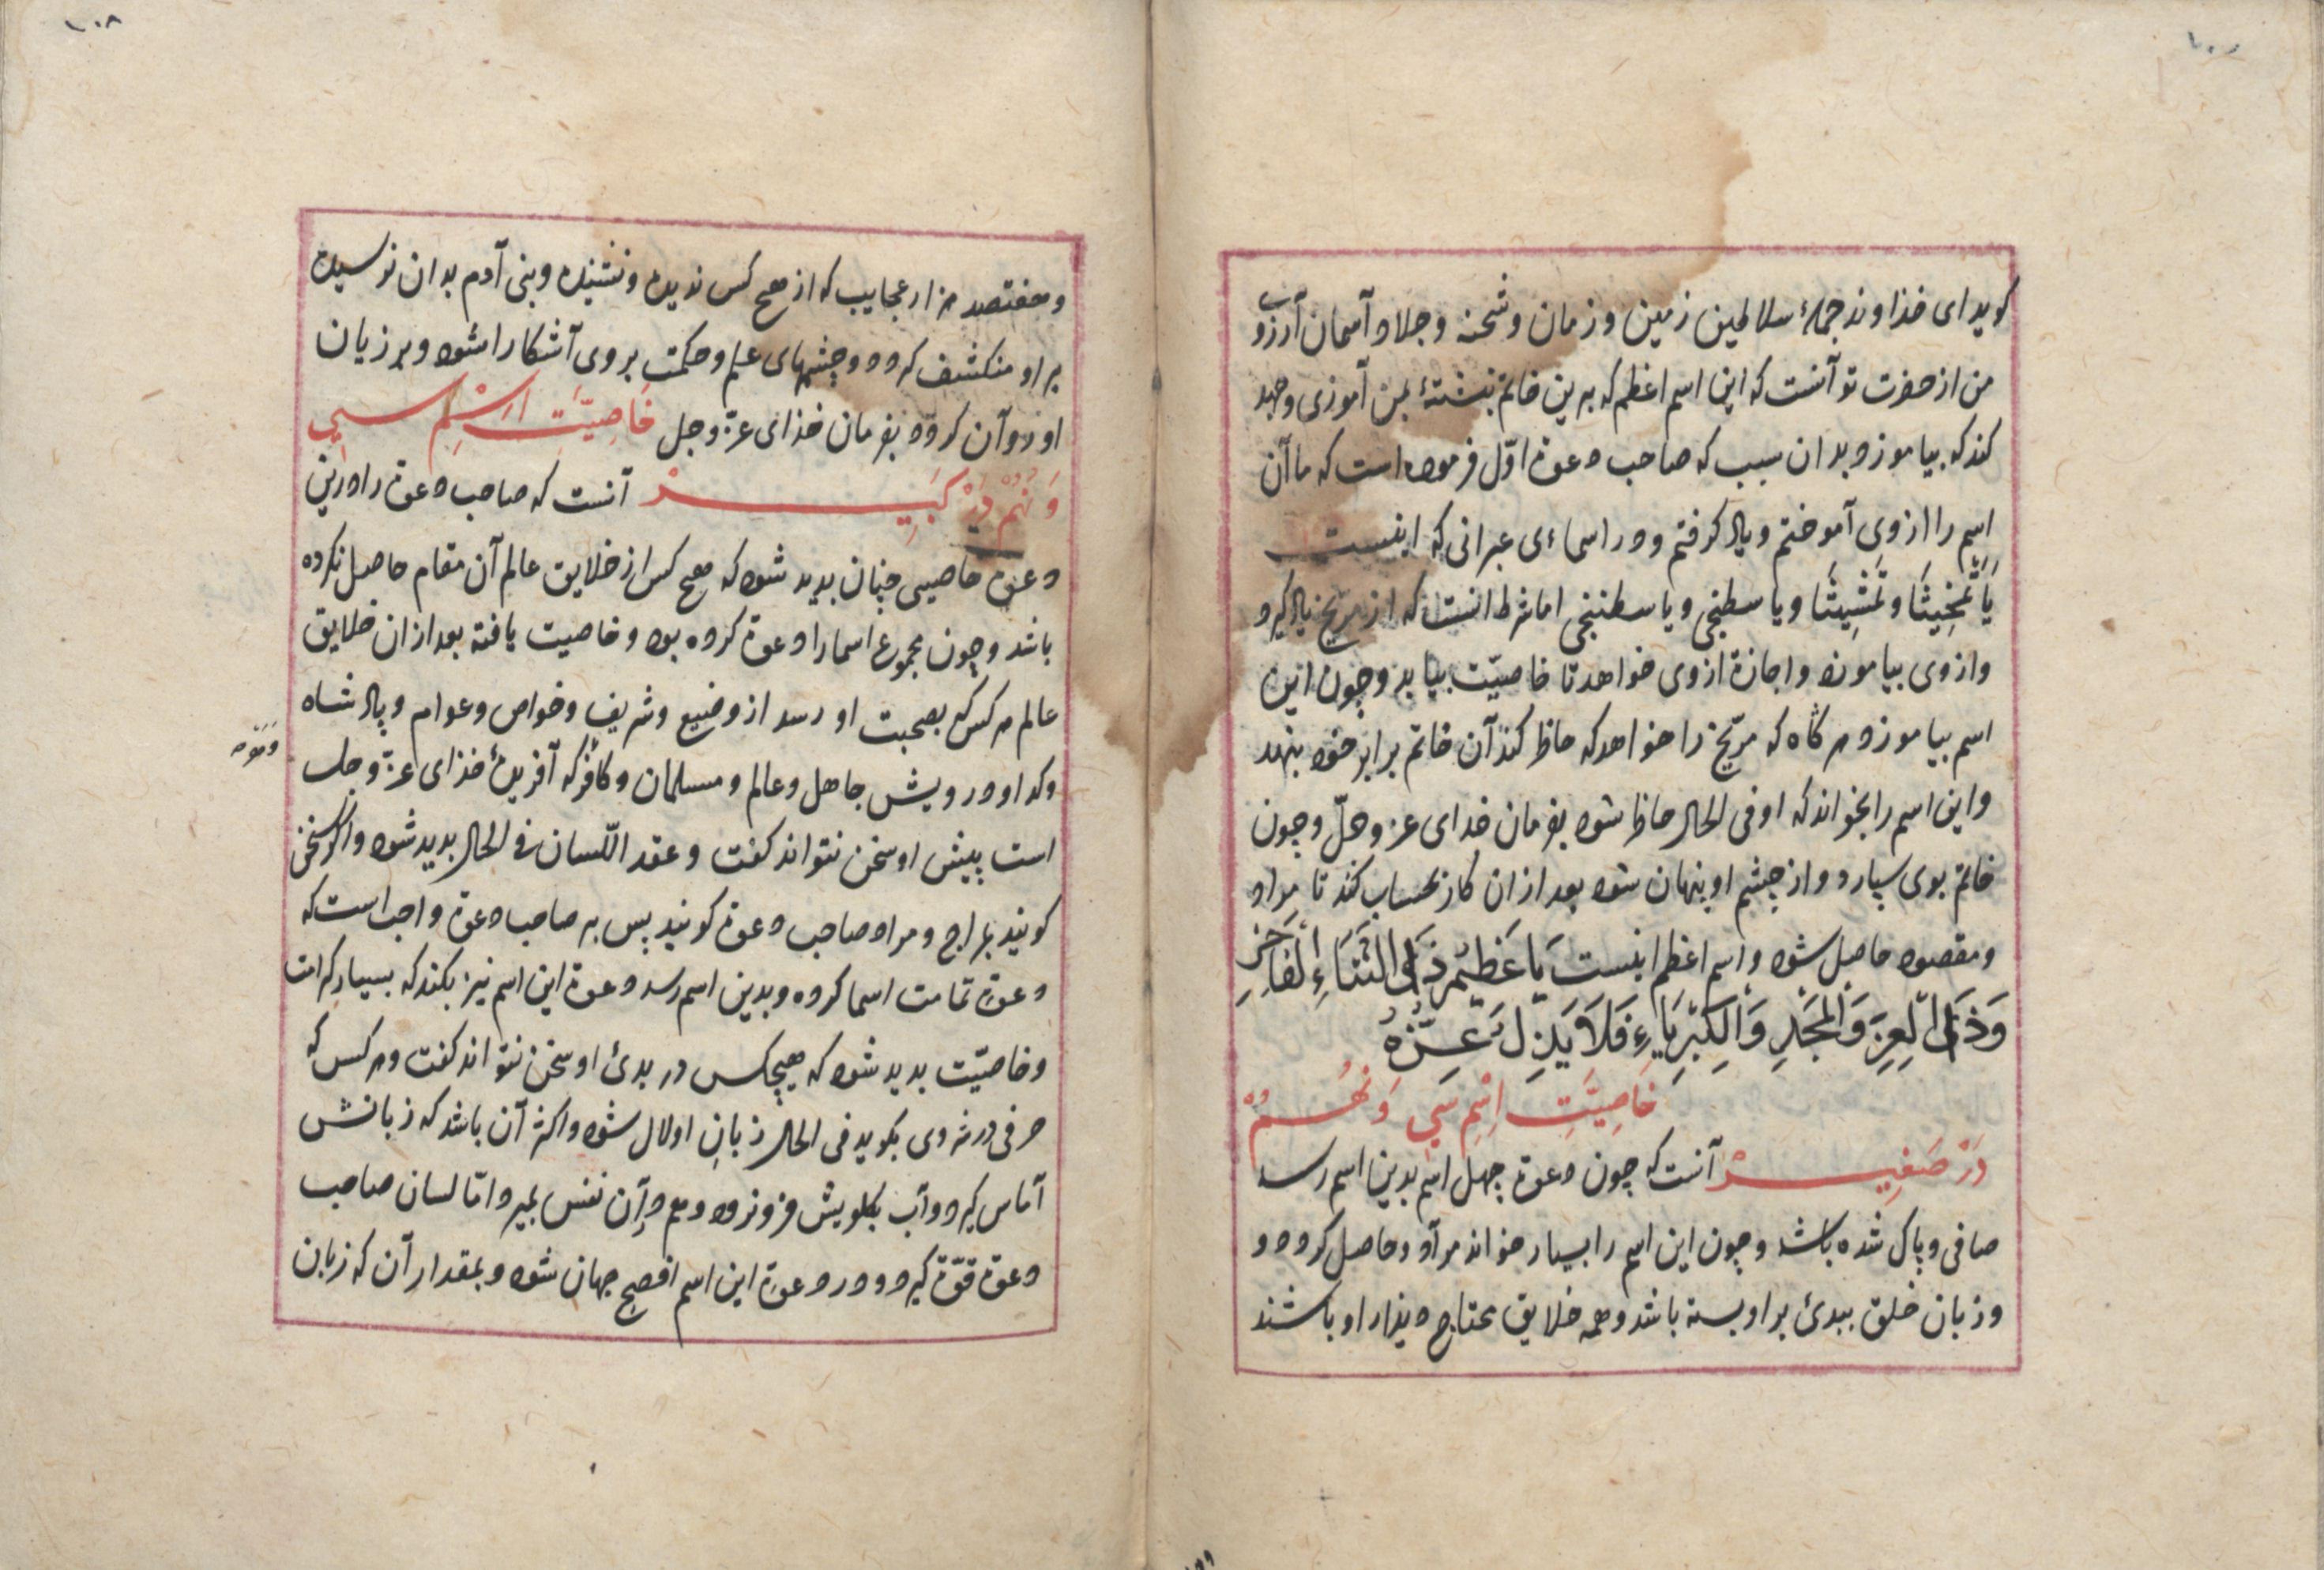 کوید ای خذاوند جملهٔ سلاطین زمین و زمان و شحنه و جلاد آسمان آرزوی
من از حضرت تو آنست که این اسم اعظم که برین خاتم نبشتهٔ بمن آموزی وجهد
کند که بیاموزد بدان سبب که صاحب دعوة اوّل فرموده است که ما آن
اسم را از وی آموختم و یاد کرفتم و در اسماءی عبرانی که اینست
یا تمخیثا و تمشیثا و یا سطبخی و یا سطنخی اما شرط انست که از مریخ یاد کیرد
و از وی بیاموزد و اجازة از وی خواهد تا خاصیّت بیابد و چون این
اسم بیاموزد هر کاه که مرّیخ را خواهد که حاظر کند آن خاتم برابر خود بنهد
و این اسم را بخواند که او فی الحال حاظر شود بفرمان خدای عز و جلّ و چون
خاتم بوی سپارد و از چشم او پنهان شود بعد از ان کار بحساب کند تا مراد
و مقصود حاصل شود و اسم اعظم اینست یَا عَظِیْمُ ذَی الثَّنَاءِ الْفَاخِرِ
وَذَی الْعِزِّ وَالْمَجْدِ وَالْکِبْرِیَاءِ فَلَا یَذِلُّ عِزُّهُ
خَاصِیَّتِ اِسْمِ سِی وَ نُهُمْ
دَرْ صَغِیرْ آنست که چون دعوة چهل اسم بدین اسم رسد
صافی و پاک شده باشد و چون این اسم را بسیار خواند مرآد و حاصل کردد و
و زبان خلق ببدئ بر او بسته باشد و همه خلایق محتاج دیذار او باشند
١٠٨
و هفتصد هزار عجایب که از هیچ کس ندیده و نشنیده و بنی آدم بدان نرسیده
بر او منکشف کردد و چشمهای علم و حکمت بر وی آشکارا شود و بر زبان
او روآن کردد بفرمان خذای عزّ و جل خَاصِیَّتِ اِسْمِ سِی
وَ نُهُم دَرْ کَبِیرْ آنست که صاحب دعوة را درین
دعوة خاصیی چنان بدید شود که هیچ کس از خلایق عالم آن مقام حاصل نکرده
باشد و چون مجموع اسما را دعوة کرده بود و خاصیت یافته بعد از ان خلایق
عالم هر کس که بصحبت او رسد از وضیع و شریف و خواص و عوام و پادشاه
و کدا و درویش جاهل و عالم و مسلمان و کافر که آفریدهٔ خذای عزّ و جل
است پیش او سخن نتواند کفت و عقد اللّسان فی الحال بدید شود و اکر سخن
کویند بمراج و مراد صاحب دعوة کویند پس بر صاحب دعوة واجب است که
دعوة تمامت اسما کرده و بدین اسم رسد دعوة این اسم نیز بکند که بسیار کرامت
و خاصیّت بدید شود که هیچکس در بدئ او سخن نتواند کفت و هر کس که
حرفی در شر وی بکوید فی الحال زبان او لال شود و اکثر آن باشد که زبانش
آماس کیرد و آب بکلویش فرو نرود و هم در آن نفس بمیرد امّا لسان صاحب
دعوة قوّة کیرد و در دعوة این اسم افصح جهان شود و بمقدار آن که زبان